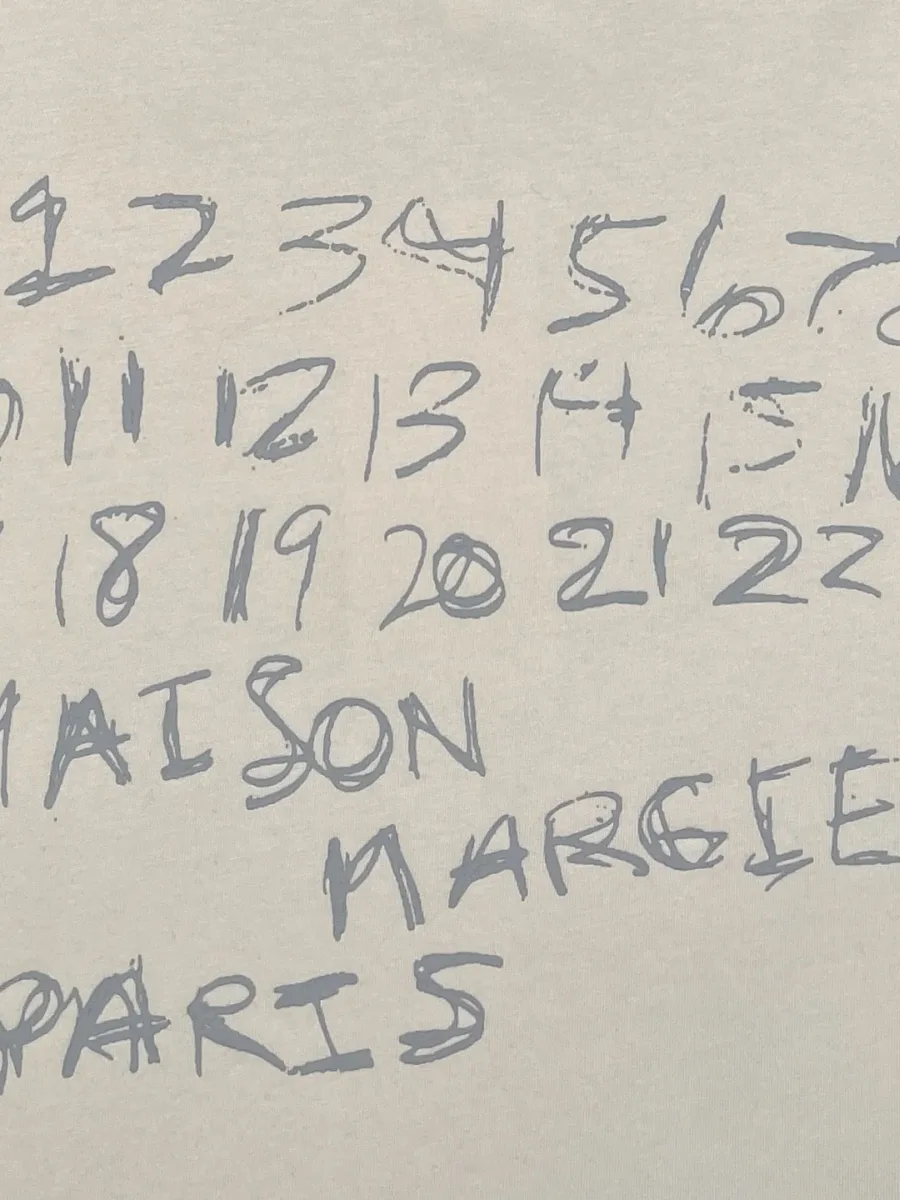 1 2 3 4 5 6 7
11 12 13 14 15
18 19 20 21 22
MAISON
MARGIE
PARIS